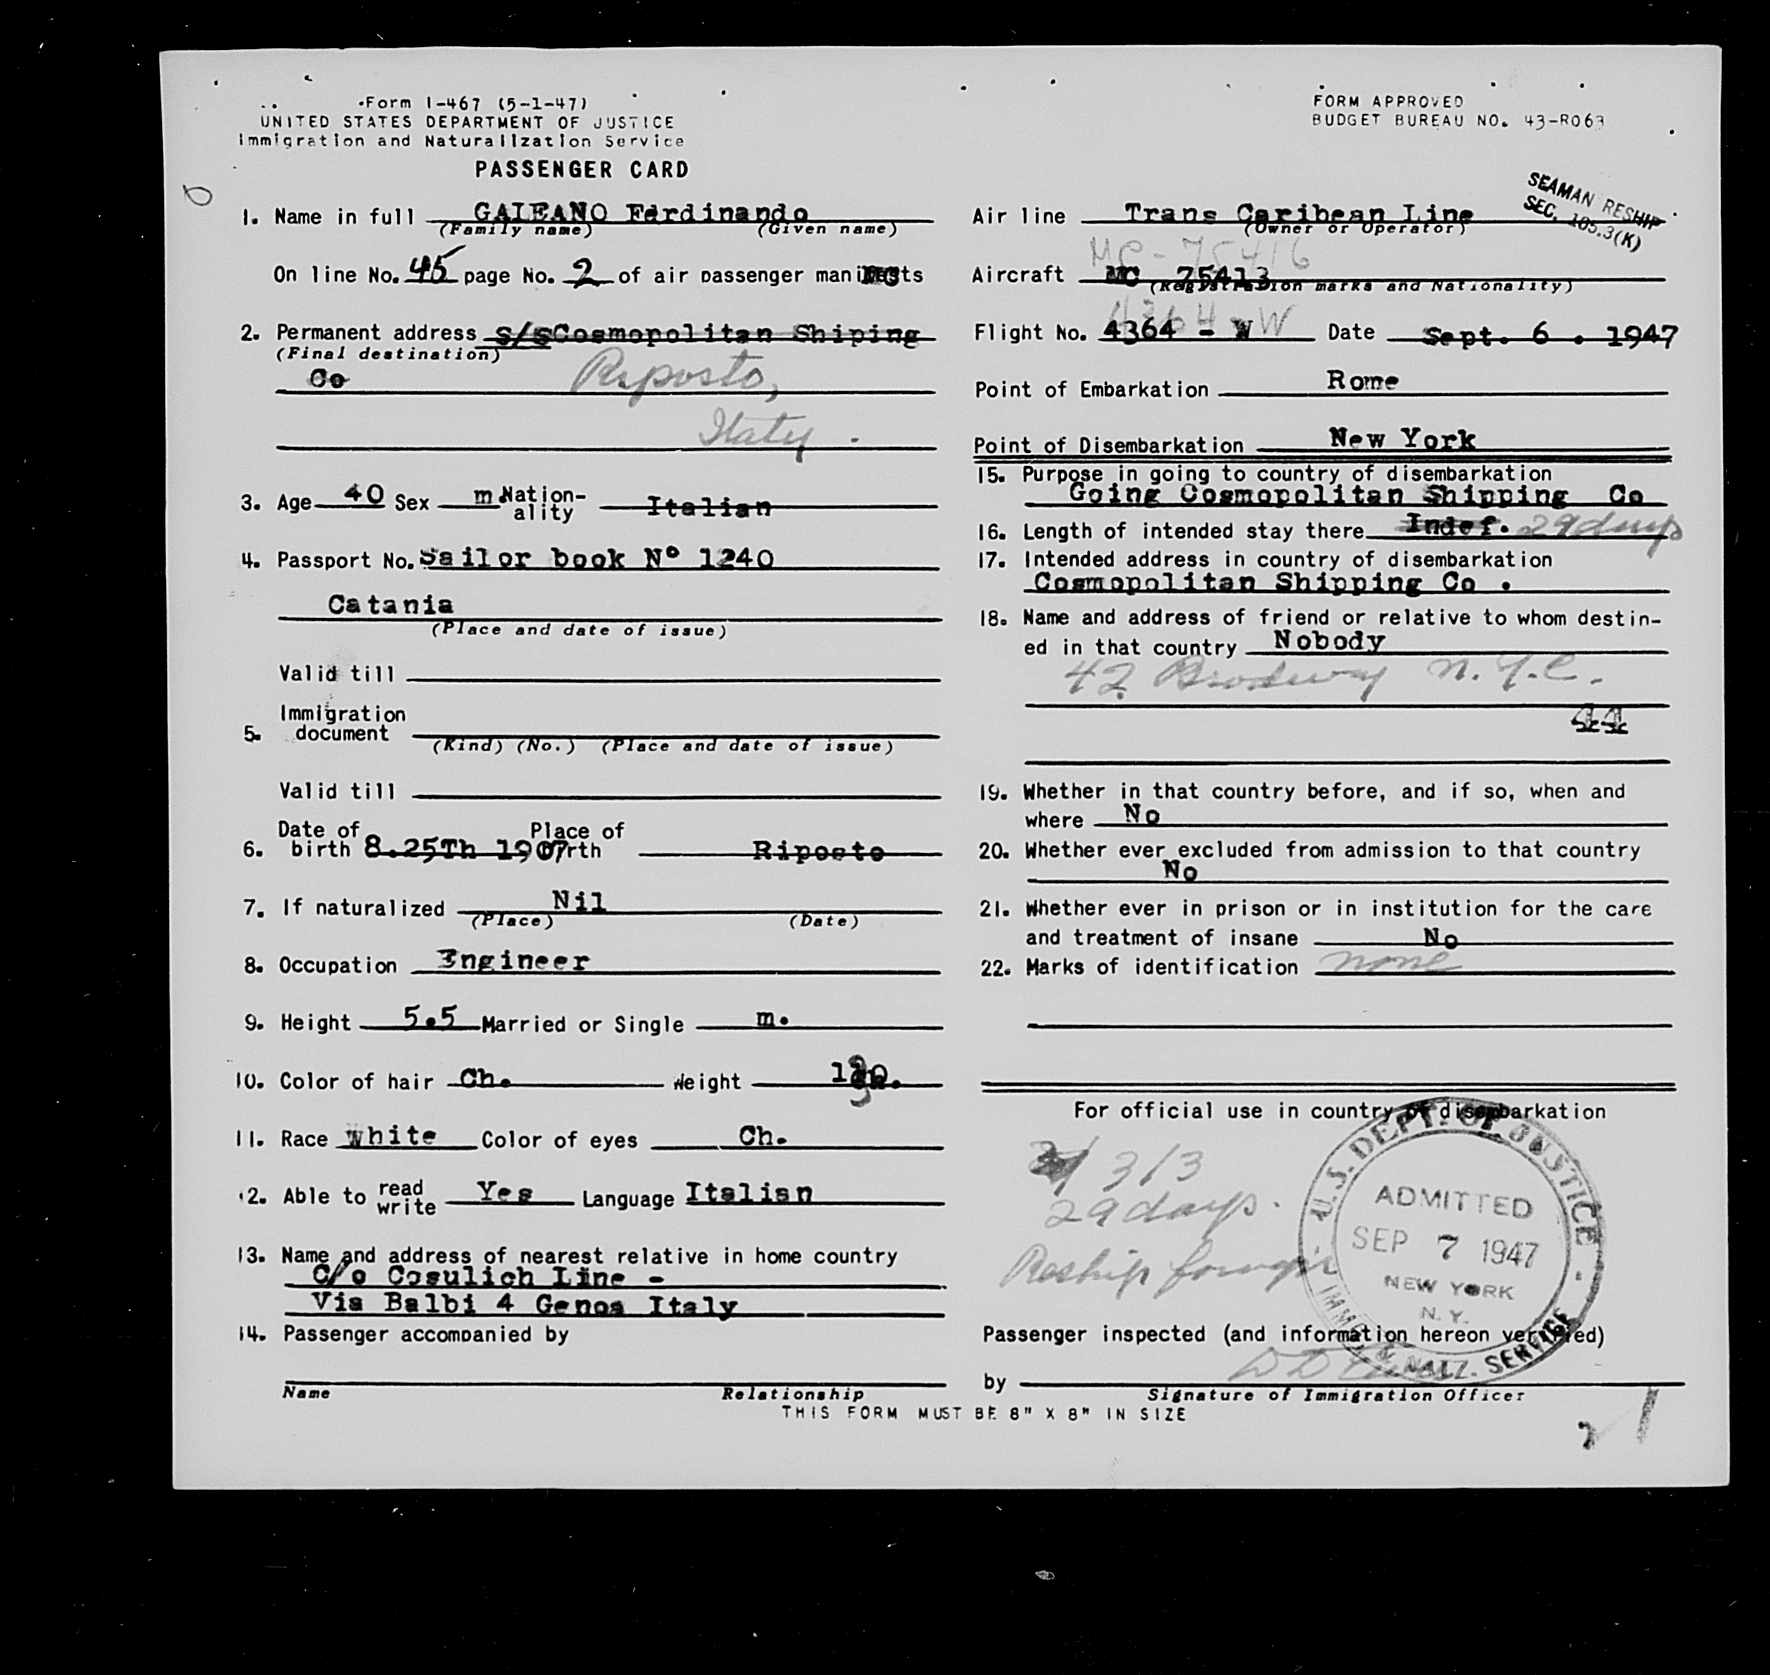 Form I-467 (5-1-47)
UNITED STATES DEPARTMENT OF JUSTICE
Immigration and Naturalization Service
PASSENGER CARD
FORM APPROVED
BUDGET BUREAU NO. 43-R063
SEAMAN RESHIP
SEC. 165.3(K)
1. Name in full GALEANO Ferdinando
(Family name) (Given name)
On line No. 45 page No. 2 of air passenger manifests
2. Permanent address S/S Cosmopolitan Shiping
(Final destination)
Co Riposto,
Italy.
3. Age 40 Sex m Nation-ality Italian
4. Passport No. Sailor book Nº 1240
Catania
(Place and date of issue)
Valid till
5. Immigration document
(Kind) (No.) (Place and date of issue)
Valid till
6. Date of birth 8.25Th 1907 Place of birth Riposto
7. If naturalized Nil
(Place) (Date)
8. Occupation Engineer
9. Height 5.5 Married or Single m.
10. Color of hair Ch. Weight
11. Race White Color of eyes Ch.
12. Able to read write Yes Language Italian
13. Name and address of nearest relative in home country
C/o Cosulich Line -
Via Balbi 4 Genoa Italy
14. Passenger accompanied by
Name Relationship
Air line Trans Caribean Line
(Owner or Operator)
MC-75416
Aircraft MC 75413
(Registration marks and Nationality)
4364-W
Flight No. 4364 - W Date Sept. 6 . 1947
Point of Embarkation Rome
Point of Disembarkation New York
15. Purpose in going to country of disembarkation
Going Cosmopolitan Shipping Co
16. Length of intended stay there Indef. 29 days
17. Intended address in country of disembarkation
Cosmopolitan Shipping Co .
18. Name and address of friend or relative to whom destin-
ed in that country Nobody
42 Brodway N.Y.C.
44
19. Whether in that country before, and if so, when and
where No
20. Whether ever excluded from admission to that country
No
21. Whether ever in prison or in institution for the care
and treatment of insane No
22. Marks of identification none
For official use in country of disembarkation
3/3
29 days.
Reship foreign
U.S. DEPT. OF JUSTICE
ADMITTED
SEP 7 1947
NEW YORK
N.Y.
IMMIG. & NATZ. SERVICE
Passenger inspected (and information hereon verified)
by
Signature of Immigration Officer
THIS FORM MUST BE 8" X 8" IN SIZE